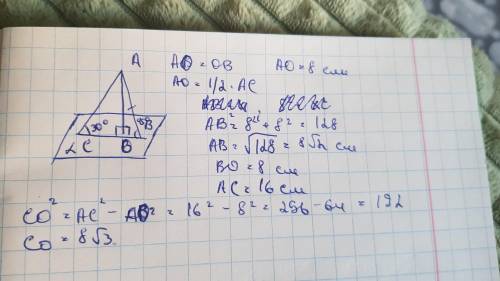 A
AO = OB   AO = 8 см
AO = 1/2 · AC
30°
45°
B
α
C
B
AB² = 8² + 8² = 128
AB = √128 = 8√2 см
BO = 8 см
AC = 16 см
CO² = AC² - AO² = 16² - 8² = 256 - 64 = 192
CO = 8√3